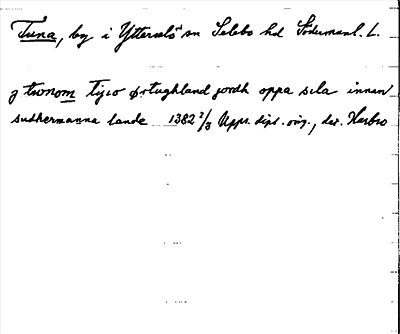 Tuna, by i Ytterselö sn Selebo hd Södermanl. L.
j twnom tijco ørtughland jordh oppa sila innan
sudhermanna lande 1382 2/3 Uppr. dipl. orig., der. Harbro